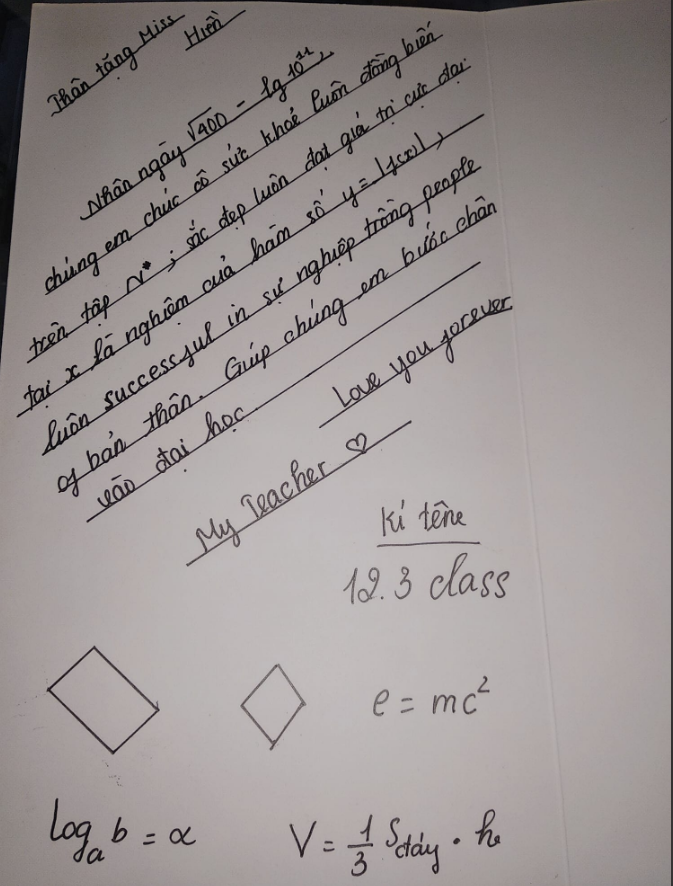 Thân tặng Miss
Hiền
Nhân ngày √400 - lg 10¹¹,
chúng em chúc cô sức khoẻ luôn đồng biến
trên tập N*, sắc đẹp luôn đạt giá trị cực đại
tại x là nghiệm của hàm số y = |f(x)|,
luôn successful in sự nghiệp trồng people
of bản thân. Giúp chúng em bước chân
vào đại học
Love you forever
My Teacher ♡
Kí tên
12.3 class
e = mc²
logₐ b = α
V = 1/3 Sđáy . h